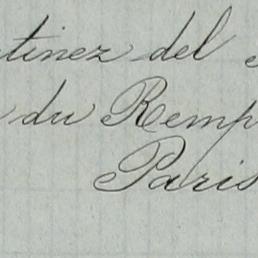 tinez del
du Remp
Paris